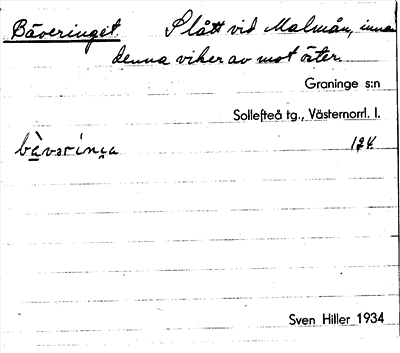 Bäveringet. Slått vid Malmån, innan
denna viker av mot öster.
Graninge s:n
Sollefteå tg., Västernorrl. l.
bävəriŋa 124
Sven Hiller 1934